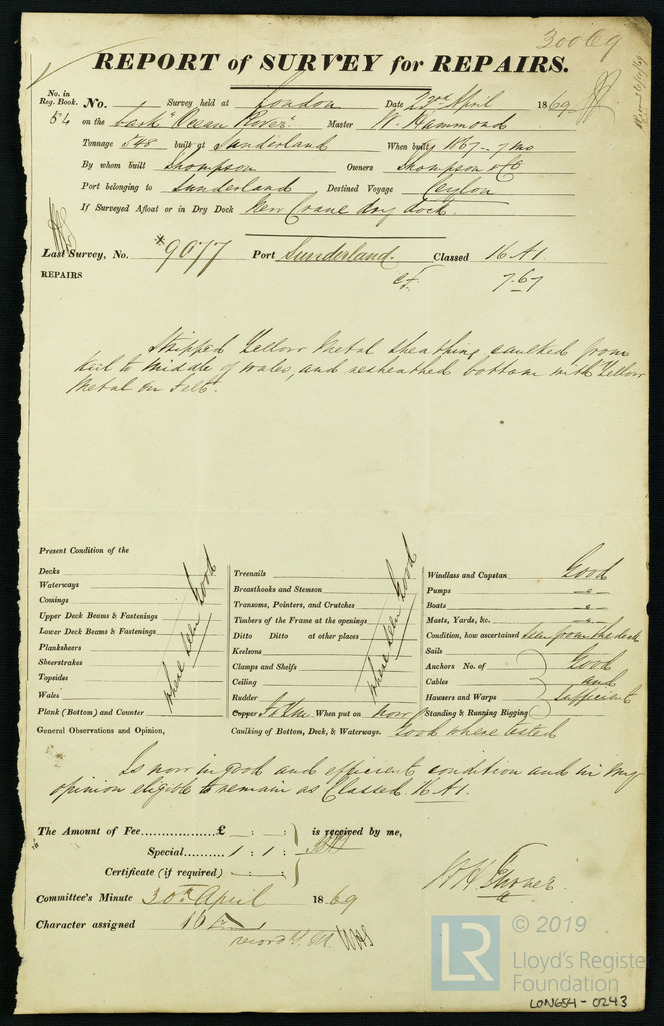 30069
REPORT of SURVEY for REPAIRS.
No. in Reg. Book. No. Survey held at London Date 23rd April 1869
54 on the bark "Ocean Rover" Master W. Hammond
Tonnage 548 built at Sunderland When built 1867 - 7 mo
By whom built Thompson Owners Thompson & Co
Port belonging to Sunderland Destined Voyage Ceylon
If Surveyed Afloat or in Dry Dock New Crane dry dock.
Last Survey, No. *9077 Port Sunderland. Classed 16 A1
REPAIRS 7.67
Stripped Yellow Metal sheathing, caulked from
keel to middle of wales, and resheathed bottom with Yellow
Metal on Felt.
Present Condition of the
Decks
Waterways
Comings
Upper Deck Beams & Fastenings
Lower Deck Beams & Fastenings
Planksheers
Sheerstrakes
Topsides
Wales
Plank (Bottom) and Counter
where seen Good
Treenails
Breasthooks and Stemson
Transoms, Pointers, and Crutches
Timbers of the Frame at the openings
Ditto Ditto at other places
Keelsons
Clamps and Shelfs
Ceiling
Rudder
Copper When put on now
where seen Good
Windlass and Capstan Good
Pumps
Boats
Masts, Yards, &c.
Condition, how ascertained seen from the deck
Sails
Anchors No. of Good
Cables and
Hawsers and Warps sufficient
Standing & Running Rigging
General Observations and Opinion, Caulking of Bottom, Deck, & Waterways. Good where tested
Is now in good and efficient condition and in my
opinion eligible to remain as Classed. 16 A1.
The Amount of Fee £ : - : is received by me,
Special 1 : 1 :
Certificate (if required) - : - :
Committee's Minute 30th April 1869
Character assigned 16 A 1
record Y.M.
© 2019
LR
Lloyd's Register
Foundation
LON654-0243